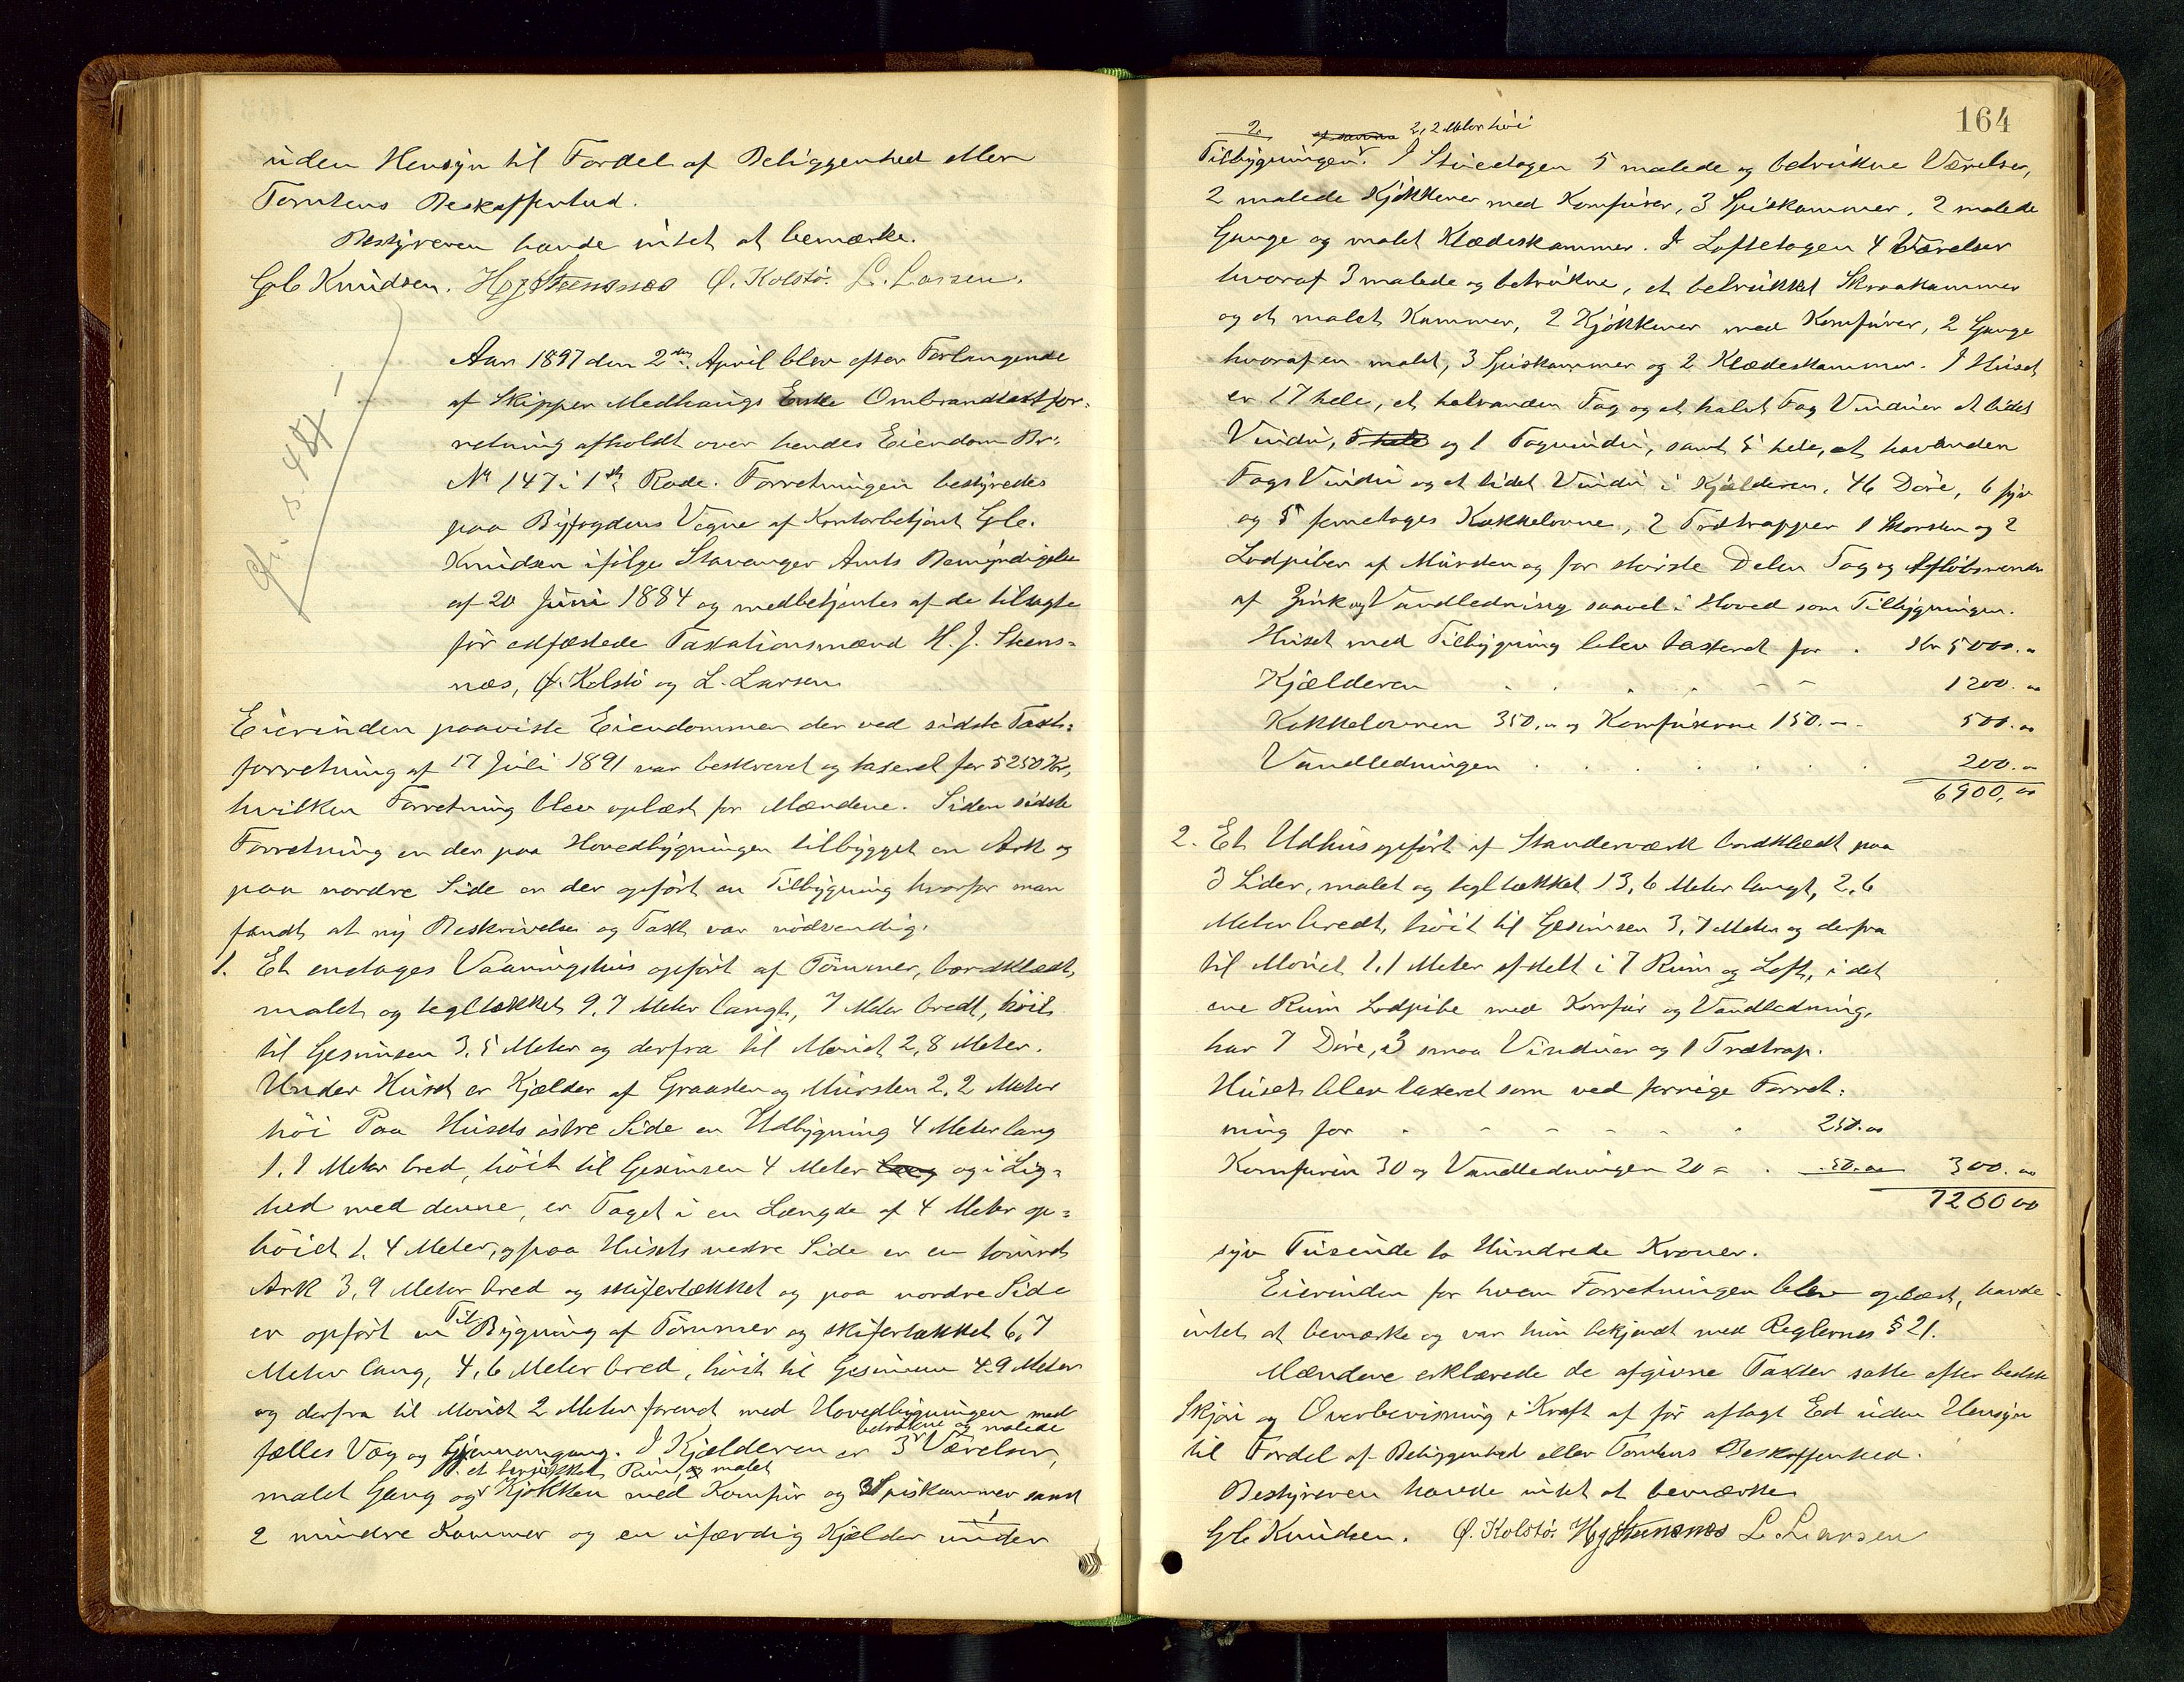 uden Hensyn til Fordel af Beliggenhed eller
Tomtens Beskaffenhed.
Bestyreren havde intet at bemærke.
Gb Knudsen. HJ Steensnæs Ø. Kolstø. L. Larsen.
Aar 1897 den 2den April blev efter Forlangende
af Skipper Medhaugs Enke Ombrandtaxtfor-
retning afholdt over hendes Eiendom Br.
No 147 i 1ste Rode. Forretningen bestyredes
paa Byfogdens Vegne af Kontorbetjent Gb.
Knudsen ifølge Stavanger Amts Bemyndigelse
af 20 Juni 1884 og medbetjentes af de tilsagte
før edfæstede Taxationsmænd H. J. Steens-
næs, Ø. Kolstø og L. Larsen
Eierinden paaviste Eiendommen der ved sidste Taxt-
forretning af 17 Juli 1891 var beskrevet og taxeret for 5250 Kr,
hvilken Forretning blev oplæst for Mændene. Siden sidste
Forretning er der paa Hovedbygningen tilbygget en Ark og
paa nordre Side er der opført en Tilbygning hvorfor man
fandt at ny Beskrivelse og Taxt var nødvendig.
1. Et enetages Vaaningshus opført af Tømmer, bordklædt,
malet og tegltækket 9,7 Meter langt, 7 Meter bredt, høit
til Gesimsen 3,5 Meter og derfra til Mønet 2,8 Meter.
Under Huset er Kjælder af Graasten og Mursten 2,2 Meter
høi Paa Husets østre Side en Udbygning 4 Meter lang
1,1 Meter bred, høit til Gesimsen 4 Meter lang og i Lig-
hed med denne, er Taget i en Længde af 4 Meter op-
høiet 1,4 Meter, og paa Husets vestre Side er en tømret
Ark 3,9 Meter bred og skifertækket og paa nordre Side
er opført en Til Bygning af Tømmer og skifertækket 6,7
Meter lang, 4,6 Meter bred, høit til Gesimsen 4,9 Meter
og derfra til Mønet 2 Meter forenet med Hovedbygningen med
betrukne og malede
fælles Væg og Gjennemgang. I Kjælderen er 3 Værelser,
et Rum, og malet
malet Gang og Kjøkken med Komfur og 3 Spiskammer samt
2 mindre Kammer og en ufærdig Kjælder under
164
2. af samme 2,2 Meter høi
Tilbygningen. I Stueetagen 5 malede og betrukne Værelser,
2 malede Kjøkkener med Komfurer, 3 Spiskammer, 2 malede
Gange og malet Klædeskammer. I Loftetagen 4 Værelser
hvoraf 3 malede og betrukne, et betrukket Skraakammer
og et malet Kammer, 2 Kjøkkener med Komfurer, 2 Gange
hvoraf en malet, 3 Spiskammer og 2 Klædeskammer. I Huset
er 17 hele, et halvanden Fag og et halvt Fag Vinduer et lidet
Vindu, 5 hele og 1 Tagvindu, samt 5 hele, et halvanden
Fags Vindu og et lidet Vindu i Kjælderen, 46 Døre, 6 fyr
og 5 femetages Kakkelovne, 2 Trætrapper 1 Skorsten og 2
Lodpiber af Mursten og for største Delen Tag og Afløbsrender
af Zink og Vandledning saavel i Hoved som Tilbygningen.
Huset med Tilbygning blev taxeret for . Kr 5000.00
Kjælderen 1200.00
Kakkelovnen 350.00 og Komfurerne 150.- 500.00
Vandledningen 200.00
6900,00
2. Et Udhus opført af Standerværk bordklædt paa
3 Sider, malet og tegltækket 13,6 Meter langt, 2,6
Meter bredt, høit til Gesimsen 3,7 Meter og derfra
til Mønet 1,1 Meter afdelt i 7 Rum og Loft, i det
ene Rum Lodpibe med Komfur og Vandledning,
har 7 Døre, 3 smaa Vinduer og 1 Trætrap.
Huset blev taxeret som ved forrige Forret-
ning for 250.00
Komfuren 30 og Vandledningen 20 = 50.00 300.00
7200 00
syv Tusinde to Hundrede Kroner.
Eierinden for hvem Forretningen blev oplæst, havde
intet at bemærke og var hun bekjendt med Reglernes § 21.
Mændene erklærede de afgivne Taxter satte efter bedste
Skjøn og Overbevisning i Kraft af før aflagt Ed uden Hensyn
til Fordel af Beliggenhed eller Tomtens Beskaffenhed.
Bestyreren havde intet at bemærke
Gb Knudsen. Ø. Kolstø. HJ Steensnæs L. Larsen